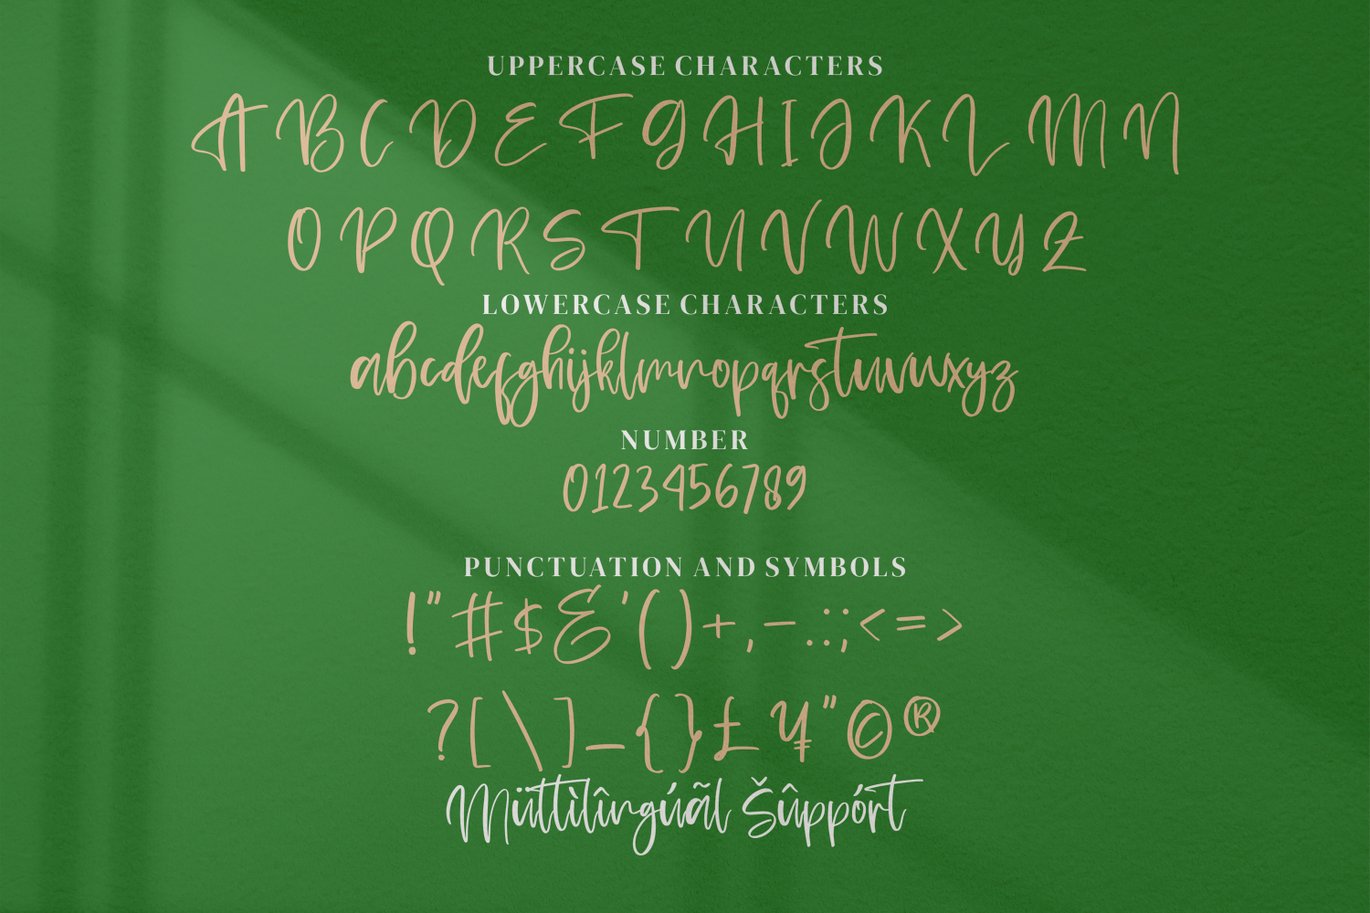 UPPERCASE CHARACTERS
A B C D E F G H I J K L M N
O P Q R S T U V W X Y Z
LOWERCASE CHARACTERS
abcdefghijklmnopqrstuvwxyz
NUMBER
0123456789
PUNCTUATION AND SYMBOLS
!"#$&'()+,-.:;<=>
?[\]_{}£¥"©®
Müttìlîngúãl Šûppórt